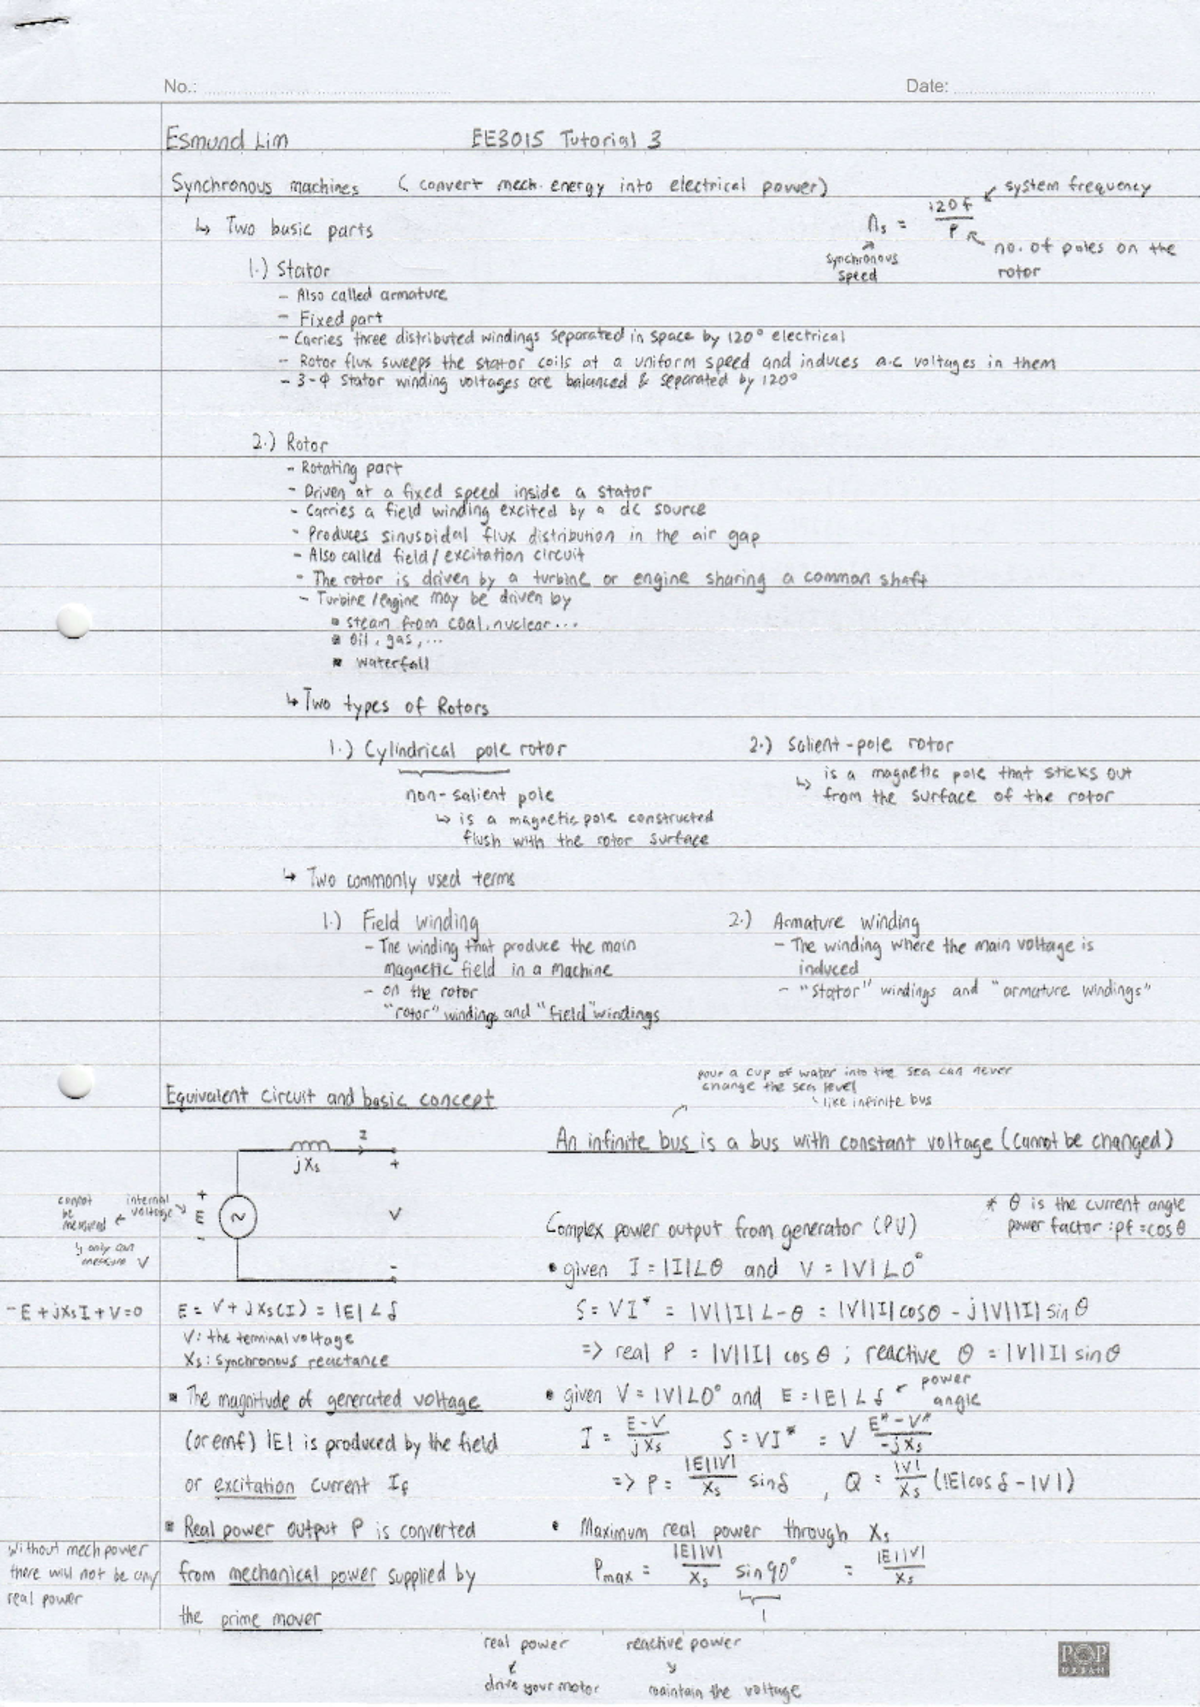 No.: Date:
Esmund Lim EE3015 Tutorial 3
Synchronous machines (convert mech. energy into electrical power)
ns = 120f / P
system frequency
no. of poles on the rotor
synchronous speed
↳ Two basic parts
1.) Stator
- Also called armature
- Fixed part
- Carries three distributed windings separated in space by 120° electrical
- Rotor flux sweeps the stator coils at a uniform speed and induces a.c voltages in them
- 3-Φ Stator winding voltages are balanced & separated by 120°
2.) Rotor
- Rotating part
- Driven at a fixed speed inside a stator
- Carries a field winding excited by a dc source
- Produces sinusoidal flux distribution in the air gap
- Also called field / excitation circuit
- The rotor is driven by a turbine or engine sharing a common shaft
- Turbine/engine may be driven by
▪ steam from coal, nuclear...
▪ oil, gas,...
▪ waterfall
↳ Two types of Rotors
1.) Cylindrical pole rotor
non-salient pole
↳ is a magnetic pole constructed
flush with the rotor surface
2.) Salient-pole rotor
↳ is a magnetic pole that sticks out
from the surface of the rotor
↳ Two commonly used terms
1.) Field winding
- The winding that produce the main
magnetic field in a machine
- on the rotor
"rotor" windings and "field" windings
2.) Armature winding
- The winding where the main voltage is
induced
- "Stator" windings and "armature windings"
Equivalent circuit and basic concept
pour a cup of water into the sea can never
change the sea level
↳ like infinite bus
An infinite bus is a bus with constant voltage (cannot be changed)
jXs
I
+
V
-
+
E
-
~
internal voltage
cannot be measured
↳ only can measure V
-E + jXsI + V = 0
E = V + jXs(I) = |E|∠δ
V: the terminal voltage
Xs: synchronous reactance
▪ The magnitude of generated voltage
(or emf) |E| is produced by the field
or excitation current If
▪ Real power output P is converted
from mechanical power supplied by
the prime mover
without mech power
there will not be any
real power
* θ is the current angle
power factor : pf = cosθ
Complex power output from generator (PU)
• given I = |I|∠θ and V = |V|∠0°
S = VI* = |V||I|∠-θ = |V||I|cosθ - j|V||I|sinθ
=> real P = |V||I| cosθ ; reactive θ = |V||I| sinθ
• given V = |V|∠0° and E = |E|∠δ
power angle
I = E-V / jXs S = VI* = V E*-V* / -jXs
=> P = |E||V| / Xs sinδ , Q = |V| / Xs (|E|cosδ - |V|)
• Maximum real power through Xs
Pmax = |E||V| / Xs sin90° = |E||V| / Xs
1
real power
drive your motor
reactive power
maintain the voltage
POP
URBAN